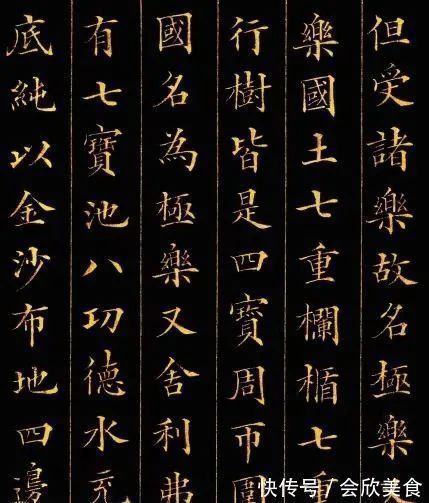 但受諸樂故名極樂
樂國土七重欄楯七重
行樹皆是四寶周帀圍
國名為極樂又舍利弗
有七寶池八功德水充
底純以金沙布地四邊
快传号 / 会欣美食